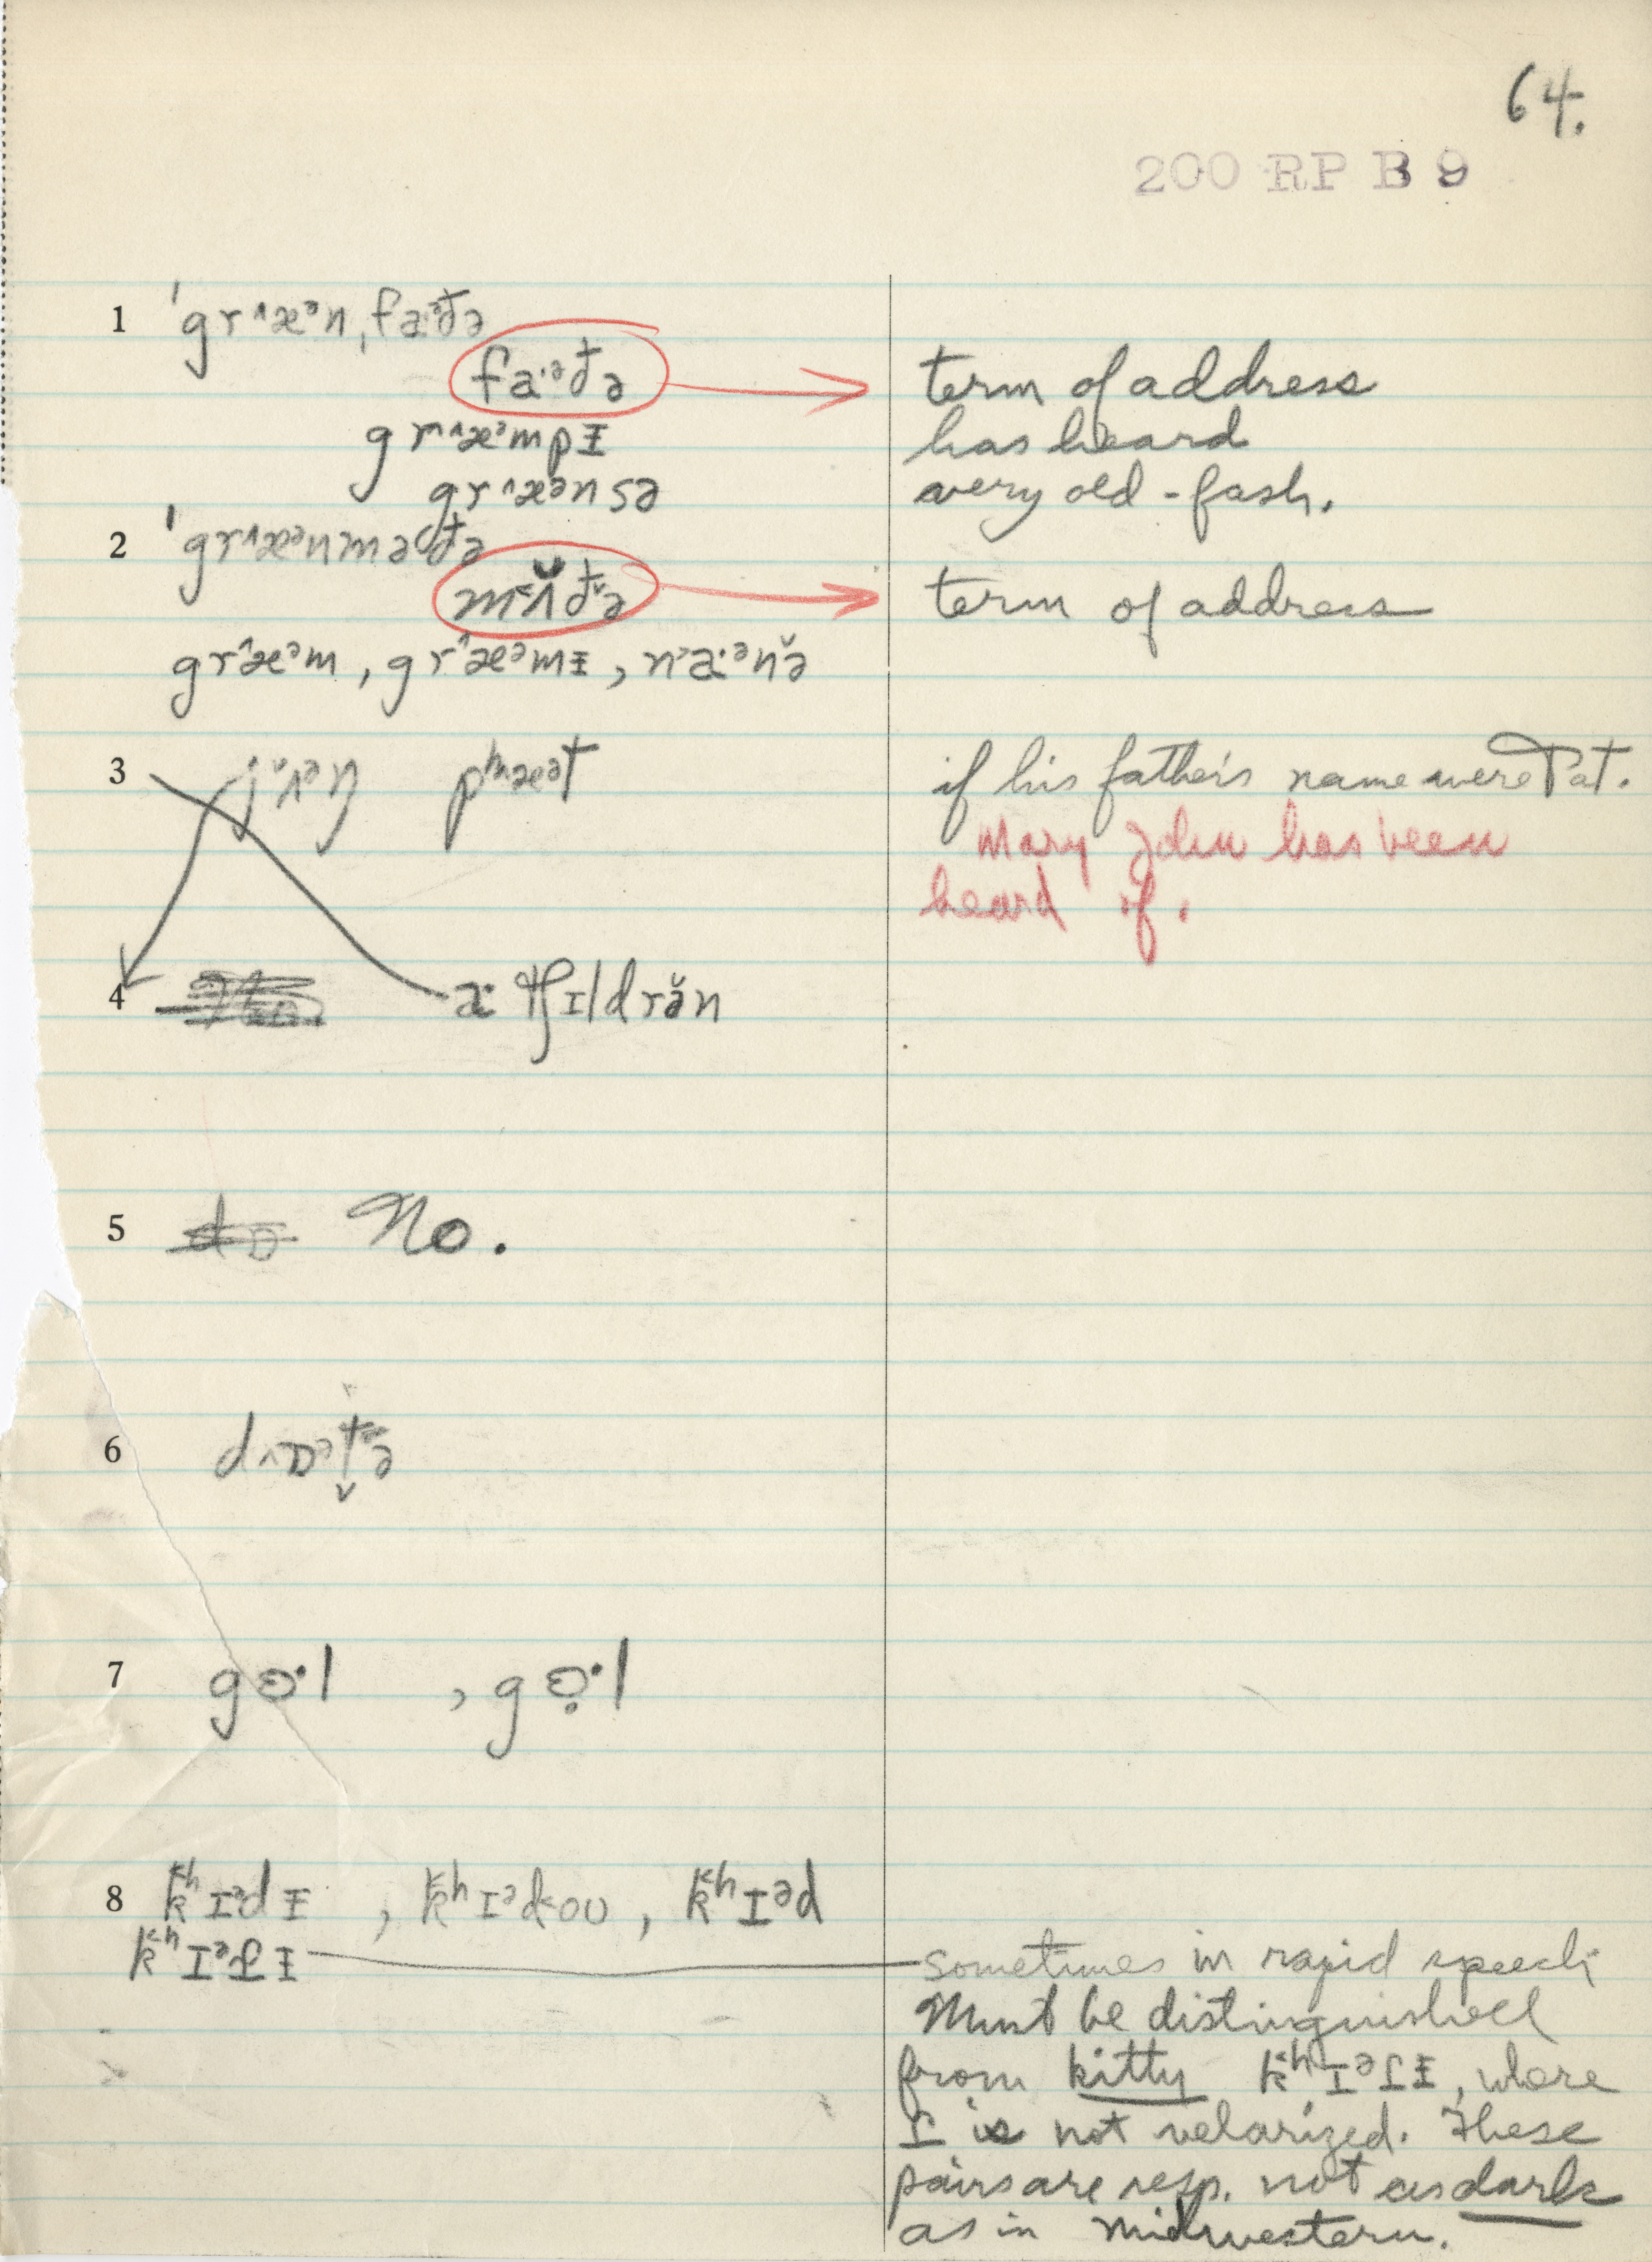 64.
200 RP B 9
1 ˈgr^æᵊn,fa·ᵊđə
fa·ᵊđə term of address
gr^æᵊmpɪ has heard
gr^æᵊnsə very old-fash.
2 ˈgr^æᵊnməđə
term of address
gr^æᵊm, gr^æᵊmɪ, n˃a·ᵊnə̆
3 pʰæᵊt if his father's name were Pat.
Mary John has been
heard of.
4 æ· tʃɪldrə̆n
5 No.
6
7 gɵ·l , gɵ̣·l
8 k˂ʰɪᵊdɪ , k˂ʰɪᵊd˂oʊ , k˂ʰɪᵊd
sometimes in rapid speech
Must be distinguished
from kitty k˂ʰɪᵊɾɪ, where
ɾ is not velarized. These
pairs are resp. not as dark
as in midwestern.